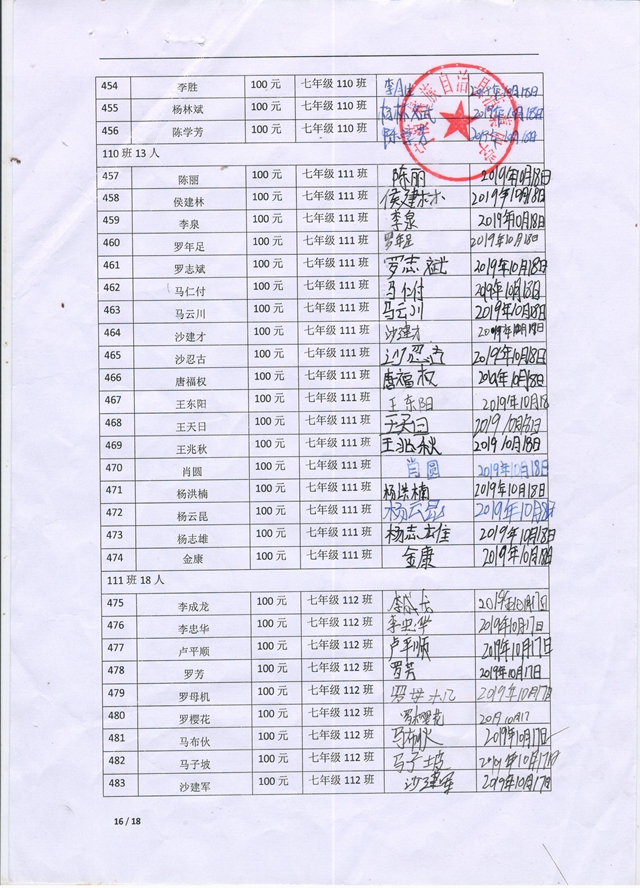 454 李胜 100元 七年级110班 李胜 2019年10月18日
455 杨林斌 100元 七年级110班 杨林斌 2019年10月18日
456 陈学芳 100元 七年级110班 陈学芳 2019年10月18日
110班13人
457 陈丽 100元 七年级111班 陈丽 2019年10月18日
458 侯建林 100元 七年级111班 侯建林 2019年10月18日
459 李泉 100元 七年级111班 李泉 2019年10月18日
460 罗年足 100元 七年级111班 罗年足 2019年10月18日
461 罗志斌 100元 七年级111班 罗志斌 2019年10月18日
462 马仁付 100元 七年级111班 马仁付 2019年10月18日
463 马云川 100元 七年级111班 马云川 2019年10月18日
464 沙建才 100元 七年级111班 沙建才 2019年10月18日
465 沙忍古 100元 七年级111班 沙忍古 2019年10月18日
466 唐福权 100元 七年级111班 唐福权 2019年10月18日
467 王东阳 100元 七年级111班 王东阳 2019年10月18
468 王天日 100元 七年级111班 王天日 2019年10月18日
469 王兆秋 100元 七年级111班 王兆秋 2019年10月18日
470 肖圆 100元 七年级111班 肖圆 2019年10月18日
471 杨洪楠 100元 七年级111班 杨洪楠 2019年10月18日
472 杨云昆 100元 七年级111班 杨云昆 2019年10月18日
473 杨志雄 100元 七年级111班 杨志雄 2019年10月18日
474 金康 100元 七年级111班 金康 2019年10月18日
111班18人
475 李成龙 100元 七年级112班 李成龙 2019年10月17日
476 李忠华 100元 七年级112班 李忠华 2019年10月17日
477 卢平顺 100元 七年级112班 卢平顺 2019年10月17日
478 罗芳 100元 七年级112班 罗芳 2019年10月17日
479 罗母机 100元 七年级112班 罗母机 2019年10月17日
480 罗樱花 100元 七年级112班 罗樱花
481 马布伙 100元 七年级112班 马布伙 2019年10月17日
482 马子坡 100元 七年级112班 马子坡 2019年10月17日
483 沙建军 100元 七年级112班 沙建军 2019年10月17日
16 / 18